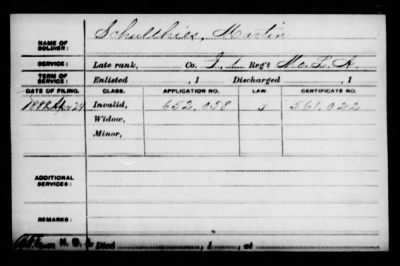 NAME OF SOLDIER: Schulthies, Martin
SERVICE: Late rank, Co. I, 1 Reg't Mo. L. A.
TERM OF SERVICE: Enlisted , 1 Discharged , 1
DATE OF FILING. CLASS. APPLICATION NO. LAW. CERTIFICATE NO.
1888 Apr 29 Invalid, 652.058 561.022
Widow,
Minor,
ADDITIONAL SERVICES:
REMARKS:
Died , 1 , at